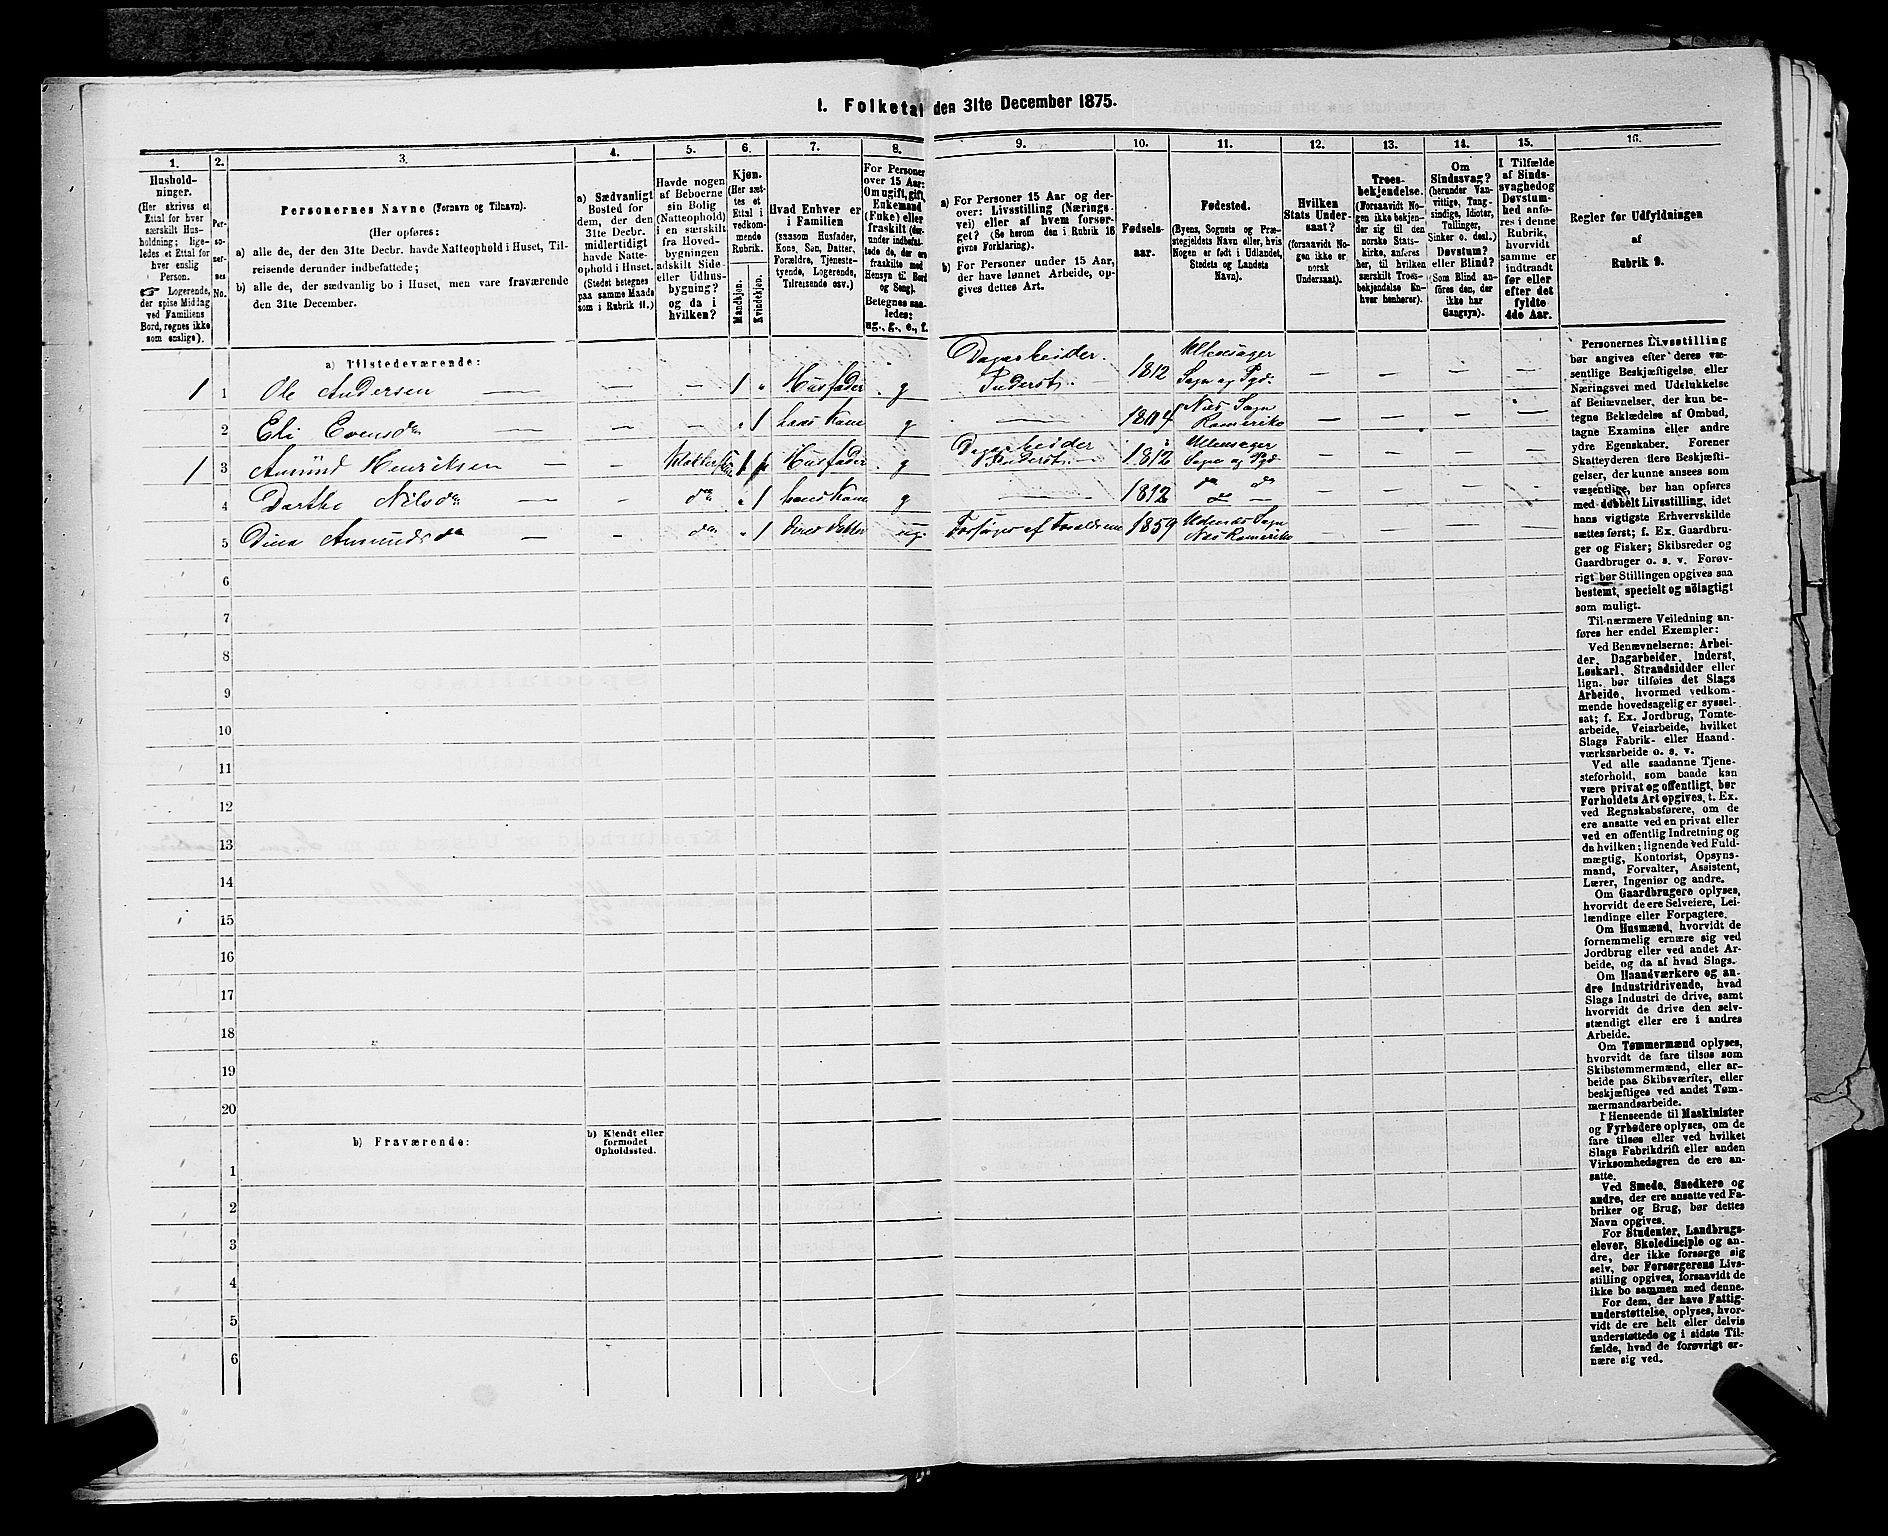 1. Folketal den 31te December 1875.
1.
2.
3.
4.
5.
6.
7.
8.
9.
10.
11.
12.
13.
14.
15.
16.
Hushold-
ninger.
(Her skrives et
Ettal for hver
særskilt Hus-
holdning; lige-
ledes et Ettal for
hver enslig
Person.
Logerende,
der spise Middag
ved Familiens
Bord, regnes ikke
som enslige).
Per-
so-
ner-
nes
No.
Personernes Navne (Fornavn og Tilnavn).
(Her opføres:
a) alle de, der den 31te Decbr. havde Natteophold i Huset, Til-
reisende derunder indbefattede;
b) alle de, der sædvanlig bo i Huset, men vare fraværende
den 31te December.
a) Sædvanligt
Bosted for
dem, der den
31te Decbr.
midlertidigt
havde Natte-
ophold i Huset.
(Stedet betegnes
paa samme Maade
som i Rubrik 11.)
Havde nogen
af Beboerne
sin Bolig
(Natteophold)
i en særskilt
fra Hoved-
bygningen
adskilt Side-
eller Udhus-
bygning?
og da i
hvilken?
Kjøn.
(Her sæt-
tes et
Ettal i
vedkom-
mende
Rubrik.
Mandkjøn.
Kvindekjøn.
Hvad Enhver er
i Familien
(saasom Husfader,
Kone, Søn, Datter,
Forældre, Tjeneste-
tyende, Logerende,
Tilreisende osv.)
For Personer
over 15 Aar:
Om ugift, gift,
Enkemand
(Enke) eller
fraskilt (der-
under indbefat-
tede de, der ere
fraskilte med
Hensyn til Bord
og Seng).
Betegnes saa-
ledes:
ug., g., e., f.
a) For Personer 15 Aar og der-
over: Livsstilling (Nærings-
vei) eller af hvem forsør-
get? (Se herom den i Rubrik 16
givne Forklaring).
b) For Personer under 15 Aar,
der have lønnet Arbeide, op-
gives dettes Art.
Fødsels-
aar.
Fødested.
(Byens, Sognets og Præ-
stegjeldets Navn eller, hvis
Nogen er født i Udlandet,
Stedets og Landets
Navn).
Hvilken
Stats Under-
saat?
(forsaavidt No-
gen ikke er
norsk
Undersaat).
Troes-
bekjendelse.
(Forsaavidt No-
gen ikke bekjen-
der sig til den
norske Stats-
kirke, anføres
her, til hvilken
særskilt Troes-
bekjendelse En-
hver henhører).
Om
Sindssvag?
(herunder Van-
vittige, Tung-
sindige, Idioter,
Tullinger,
Sinker o. desl.)
Døvstum?
eller Blind?
(Som Blind an-
føres den, der
ikke har
Gangsyn).
I Tilfælde
af Sinds-
svaghed og
Døvstum-
hed anfø-
res i denne
Rubrik,
hvorvidt
samme er
indtraadt
før eller
efter det
fyldte
4de Aar.
Regler for Udfyldningen
af
Rubrik 9.
a) Tilstedeværende:
1 1 Ole Andersen — — — 1 " Husfader g Dagarbeider Inderst. — 1812 Ullensager Sogn og Pgd. — — — —
2 Eli Evensdr — — " 1 hans Kone g — 1804 Næs Sogn Romerike — — — —
1 3 Amund Henriksen — — 1 Husfader g Dagarbeider Inderst. — 1812 Ullensager Sogn og Pgd — — — —
4 Dorthe Nilsdr — — do " 1 hans Kone g — 1812 do do — — — —
5 Dina Amundsdr — — do " 1 deres Datter ug. Forsørges af Forældrene 1859 Udenæs Sogn Næs Romerike — — — —
6
7
8
9
10
11
12
13
14
15
16
17
18
19
20
b) Fraværende:
b) Kjendt eller
formodet
Opholdssted.
1
2
3
4
5
6
Personernes Livsstilling
bør angives efter deres væ-
sentlige Beskjæftigelse, eller
Næringsvei med Udelukkelse
af Benævnelser, der kun be-
tegne Beklædelse af Ombud,
tagne Examina eller andre
ydre Egenskaber. Forener
Skatteyderen flere Beskjæfti-
gelser, der kunne ansees som
væsentlige, bør han opføres
med dobbelt Livsstilling, idet
hans vigtigste Erhvervskilde
sættes først; f. Ex. Gaardbru-
ger og Fisker; Skibsreder og
Gaardbruger o. s. v. Forøv-
rigt bør Stillingen opgives saa
bestemt, specielt og nöiagtigt
som muligt.
Til nærmere Veiledning an-
føres her endel Exempler:
Ved Benævnelserne: Arbei-
der, Dagarbeider, Inderst,
Løskarl, Strandsidder eller
lign. bør tilføies det Slags
Arbeide, hvormed vedkom-
mende hovedsagelig er syssel-
sat; f. Ex. Jordbrug, Tomte-
arbeide, Veiarbeide, hvilket
Slags Fabrik- eller Haand-
værksarbeide o. s. v.
Ved alle saadanne Tjene-
steforhold, som baade kan
være privat og offentligt, bør
Forholdets Art opgives, t. Ex.
ved Regnskabsførere, om de
ere ansatte ved en privat eller
ved en offentlig Indretning og
da hvilken; lignende ved Fuld-
mægtig, Kontorist, Opsyns-
mand, Forvalter, Assistent,
Lærer, Ingeniør og andre.
Om Gaardbrugere oplyses,
hvorvidt de ere Selveiere, Lei-
lændinge eller Forpagtere.
Om Husmænd, hvorvidt de
fornemmelig ernære sig ved
Jordbrug eller ved andet Ar-
beide, og da af hvad Slags.
Om Haandværkere og an-
dre Industridrivende, hvad
Slags Industri de drive, samt
hvorvidt de drive den selv-
stændigt eller ere i andres
Arbeide.
Om Tømmermænd oplyses,
hvorvidt de fare tilsøs som
Skibstømmermænd, eller ar-
beide paa Skibsværfter, eller
beskjæftiges ved andet Tøm-
mermandsarbeide.
I Henseende til Maskinister
og Fyrbødere oplyses, om de
fare tilsøs eller ved hvilket
Slags Fabrikdrift eller anden
Virksomhedsgren de ere an-
satte.
Ved Smede, Snedkere og
andre, der ere ansatte ved Fa-
briker og Brug, bør dettes
Navn opgives.
For Studenter, Landbrugs-
elever, Skoledisciple og an-
dre, der ikke forsørge sig
selv, bør Forsørgerens Livs-
stilling opgives, forsaavidt de
ikke bo sammen med denne.
For dem, der have Fattig-
understøttelse, oplyses, hvor-
vidt de ere helt eller delvis
understøttede og i sidste Til-
fælde, hvad de forøvrigt er-
nære sig ved.